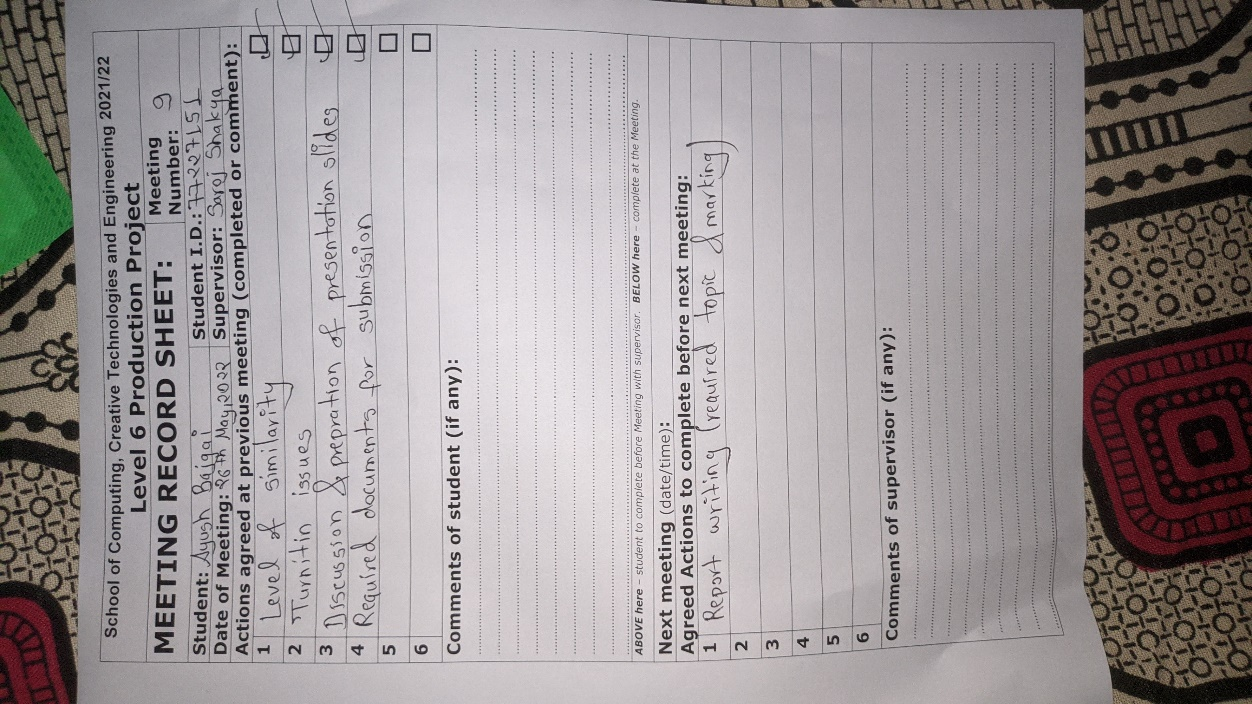 School of Computing, Creative Technologies and Engineering 2021/22
Level 6 Production Project
MEETING RECORD SHEET: Meeting Number: 9
Student: Ayush Bajgai Student I.D.: 77227151
Date of Meeting: 26th May, 2022 Supervisor: Saroj Shakya
Actions agreed at previous meeting (completed or comment):
1 Level of similarity
2 Turnitin issues
3 Discussion & prepration of presentation slides
4 Required documents for submission
5
6
Comments of student (if any):
ABOVE here – student to complete before Meeting with supervisor. BELOW here – complete at the Meeting.
Next meeting (date/time):
Agreed Actions to complete before next meeting:
1 Report writing (required topic & marking)
2
3
4
5
6
Comments of supervisor (if any):